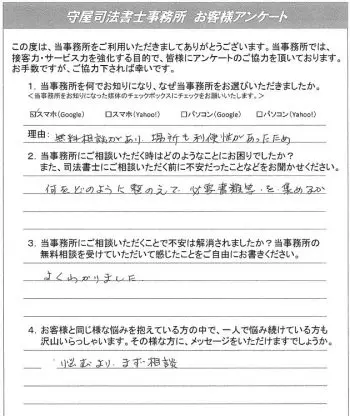 守屋司法書士事務所 お客様アンケート
この度は、当事務所をご利用いただきましてありがとうございます。当事務所では、
接客力・サービス力を強化する目的で、皆様にアンケートのご協力を頂いております。
お手数ですが、ご協力下されば幸いです。
1. 当事務所を何でお知りになり、なぜ当事務所をお選びいただきましたか。
<当事務所をお知りになった媒体のチェックボックスにチェックをお願いいたします。>
☑スマホ(Google) □スマホ(Yahoo!) □パソコン(Google) □パソコン(Yahoo!)
理由: 無料相談があり 場所も利便性があったため
2. 当事務所にご相談いただく時はどのようなことにお困りでしたか?
また、司法書士にご相談いただく前に不安だったことなどをお聞かせください。
何をどのように整のえて 必要書類等を集めるか
3. 当事務所にご相談いただくことで不安は解消されましたか?当事務所の
無料相談を受けていただいて感じたことをご自由にお書きください。
よくわかりました
4. お客様と同じ様な悩みを抱えている方の中で、一人で悩み続けている方も
沢山いらっしゃいます。その様な方に、メッセージをいただけますでしょうか。
悩むより まず相談